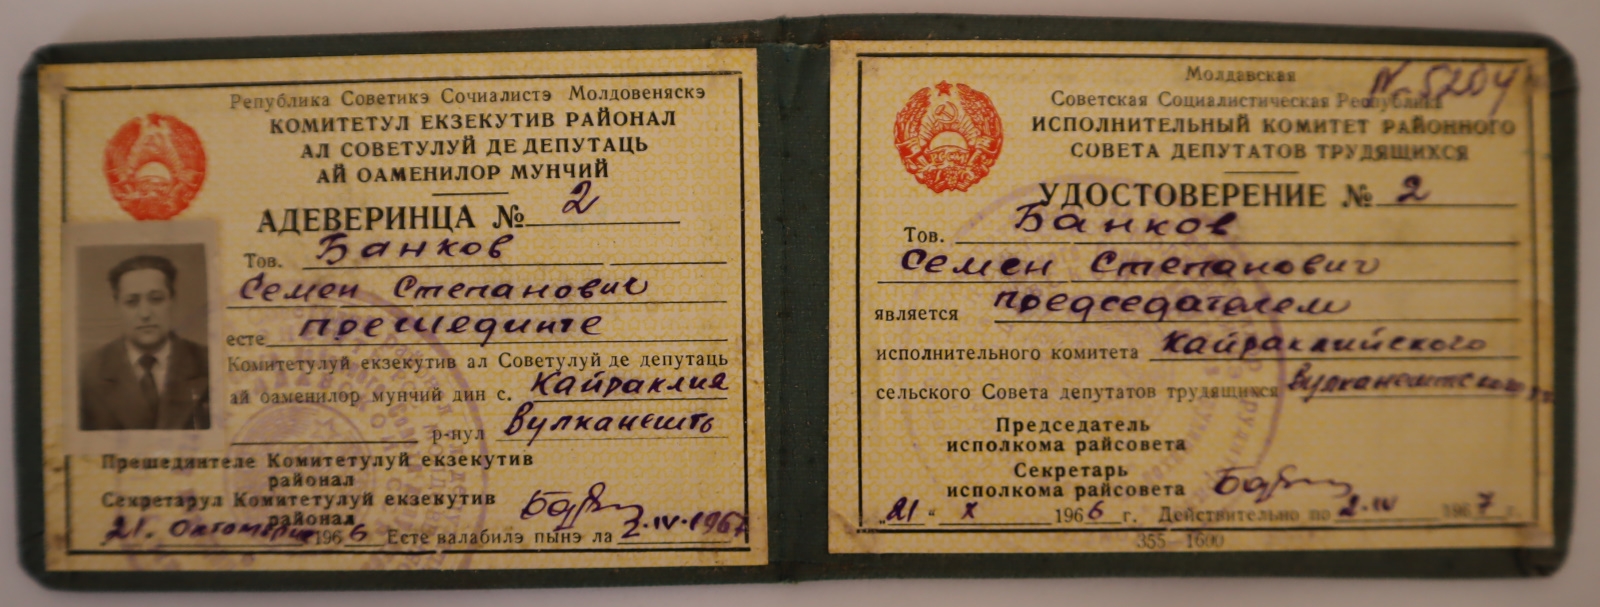 Република Советикэ Сочиалистэ Молдовеняскэ
КОМИТЕТУЛ ЕКЗЕКУТИВ РАЙОНАЛ
АЛ СОВЕТУЛУЙ ДЕ ДЕПУТАЦЬ
АЙ ОАМЕНИЛОР МУНЧИЙ
АДЕВЕРИНЦА № 2
Тов. Банков
Семен Степанович
есте прешединте
Комитетулуй екзекутив ал Советулуй де депутаць
ай оаменилор мунчий дин с. Кайраклия
р-нул Вулканешть
Прешединтеле Комитетулуй екзекутив
районал
Секретарул Комитетулуй екзекутив
районал
21. Октомбрие 1966 Есте валабилэ пынэ ла 2.IV.1967
Молдавская
№ 5204
Советская Социалистическая Республика
ИСПОЛНИТЕЛЬНЫЙ КОМИТЕТ РАЙОННОГО
СОВЕТА ДЕПУТАТОВ ТРУДЯЩИХСЯ
УДОСТОВЕРЕНИЕ № 2
Тов. Банков
Семен Степанович
является председателем
исполнительного комитета Кайраклийского
сельского Совета депутатов трудящихся Вулканештского
Председатель
исполкома райсовета
Секретарь
исполкома райсовета
„21“ X 1966 г. Действительно по 2.IV 1967 г.
355—1600